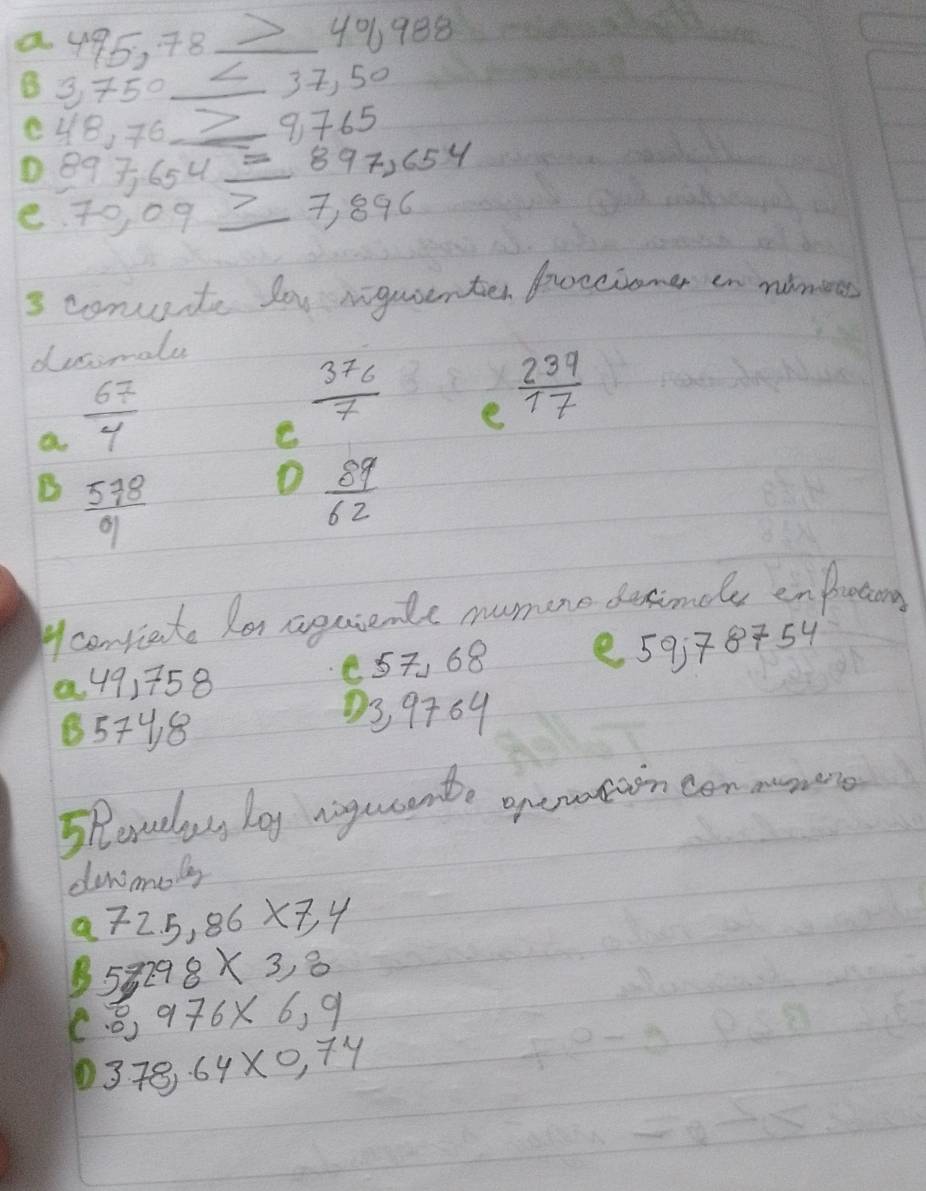 a 495,78 > 49,988
B 3,750 < 37,50
c 48,76 > 9,765
D 897,654 = 897,654
e 70,09 > 7,896
3 convierte los siguientes fracciones en números
decimales
a 67/4 c 376/7 e 239/17
B 578/9 D 89/62
4 convierte los siguiente numero decimales en fracciones
a 49,758 c 57,68 e 59,78754
B 574,8 D 3,9764
5 Resuelves los siguiente operación con numero
decimales
a 725,86 X 7,4
B 57,298 X 3,8
c 8,976 X 6,9
D 378,64 X 0,74